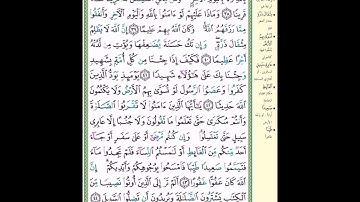 قَرِينًا ٣٨ وَمَاذَا عَلَيْهِمْ لَوْ ءَامَنُوا۟ بِٱللَّهِ وَٱلْيَوْمِ ٱلْـَٔاخِرِ وَأَنفَقُوا۟
مِمَّا رَزَقَهُمُ ٱللَّهُ وَكَانَ ٱللَّهُ بِهِمْ عَلِيمًا ٣٩ إِنَّ ٱللَّهَ لَا يَظْلِمُ
مِثْقَالَ ذَرَّةٍ وَإِن تَكُ حَسَنَةً يُضَٰعِفْهَا وَيُؤْتِ مِن لَّدُنْهُ
أَجْرًا عَظِيمًا ٤٠ فَكَيْفَ إِذَا جِئْنَا مِن كُلِّ أُمَّةٍۭ بِشَهِيدٍ
وَجِئْنَا بِكَ عَلَىٰ هَٰٓؤُلَآءِ شَهِيدًا ٤١ يَوْمَئِذٍ يَوَدُّ ٱلَّذِينَ
كَفَرُوا۟ وَعَصَوُا۟ ٱلرَّسُولَ لَوْ تُسَوَّىٰ بِهِمُ ٱلْأَرْضُ وَلَا يَكْتُمُونَ
ٱللَّهَ حَدِيثًا ٤٢ يَٰٓأَيُّهَا ٱلَّذِينَ ءَامَنُوا۟ لَا تَقْرَبُوا۟ ٱلصَّلَوٰةَ
وَأَنتُمْ سُكَٰرَىٰ حَتَّىٰ تَعْلَمُوا۟ مَا تَقُولُونَ وَلَا جُنُبًا إِلَّا عَابِرِى
سَبِيلٍ حَتَّىٰ تَغْتَسِلُوا۟ وَإِن كُنتُم مَّرْضَىٰٓ أَوْ عَلَىٰ سَفَرٍ أَوْ جَآءَ
أَحَدٌ مِّنكُم مِّنَ ٱلْغَآئِطِ أَوْ لَٰمَسْتُمُ ٱلنِّسَآءَ فَلَمْ تَجِدُوا۟ مَآءً
فَتَيَمَّمُوا۟ صَعِيدًا طَيِّبًا فَٱمْسَحُوا۟ بِوُجُوهِكُمْ وَأَيْدِيكُمْ إِنَّ
ٱللَّهَ كَانَ عَفُوًّا غَفُورًا ٤٣ أَلَمْ تَرَ إِلَى ٱلَّذِينَ أُوتُوا۟ نَصِيبًا مِّنَ
ٱلْكِتَٰبِ يَشْتَرُونَ ٱلضَّلَٰلَةَ وَيُرِيدُونَ أَن تَضِلُّوا۟ ٱلسَّبِيلَ ٤٤